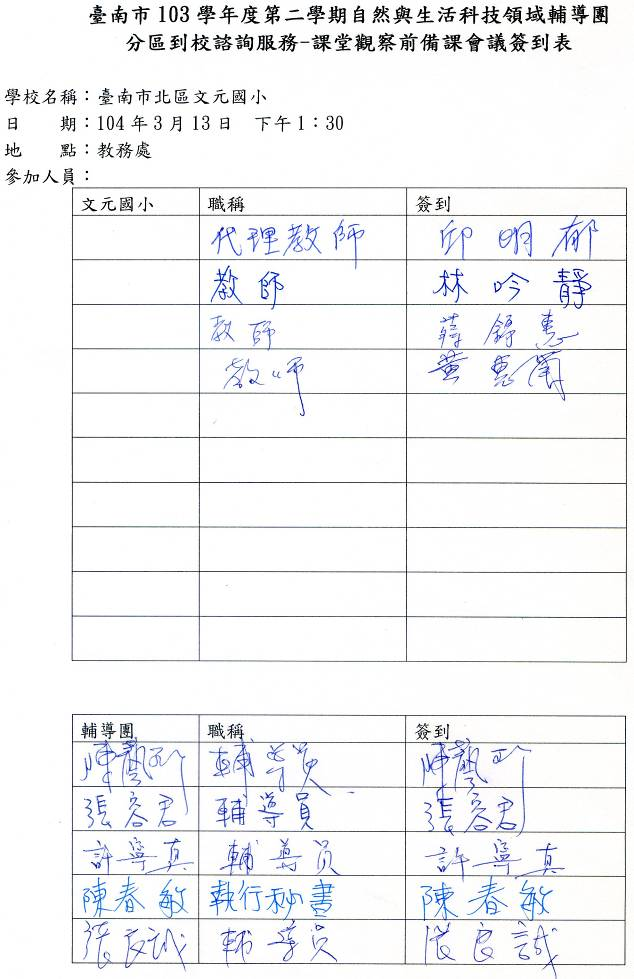 臺南市 103 學年度第二學期自然與生活科技領域輔導團
分區到校諮詢服務-課堂觀察前備課會議簽到表
學校名稱：臺南市北區文元國小
日　　期：104 年 3 月 13 日　下午 1：30
地　　點：教務處
參加人員：
文元國小 職稱 簽到
代理教師 邱明郁
教師 林吟靜
教師 蔣舒惠
教師 黃惠蘭
輔導團 職稱 簽到
陳藝 輔導員 陳藝
張容君 輔導員 張容君
許寧真 輔導員 許寧真
陳春敏 執行秘書 陳春敏
張良誠 輔導員 張良誠